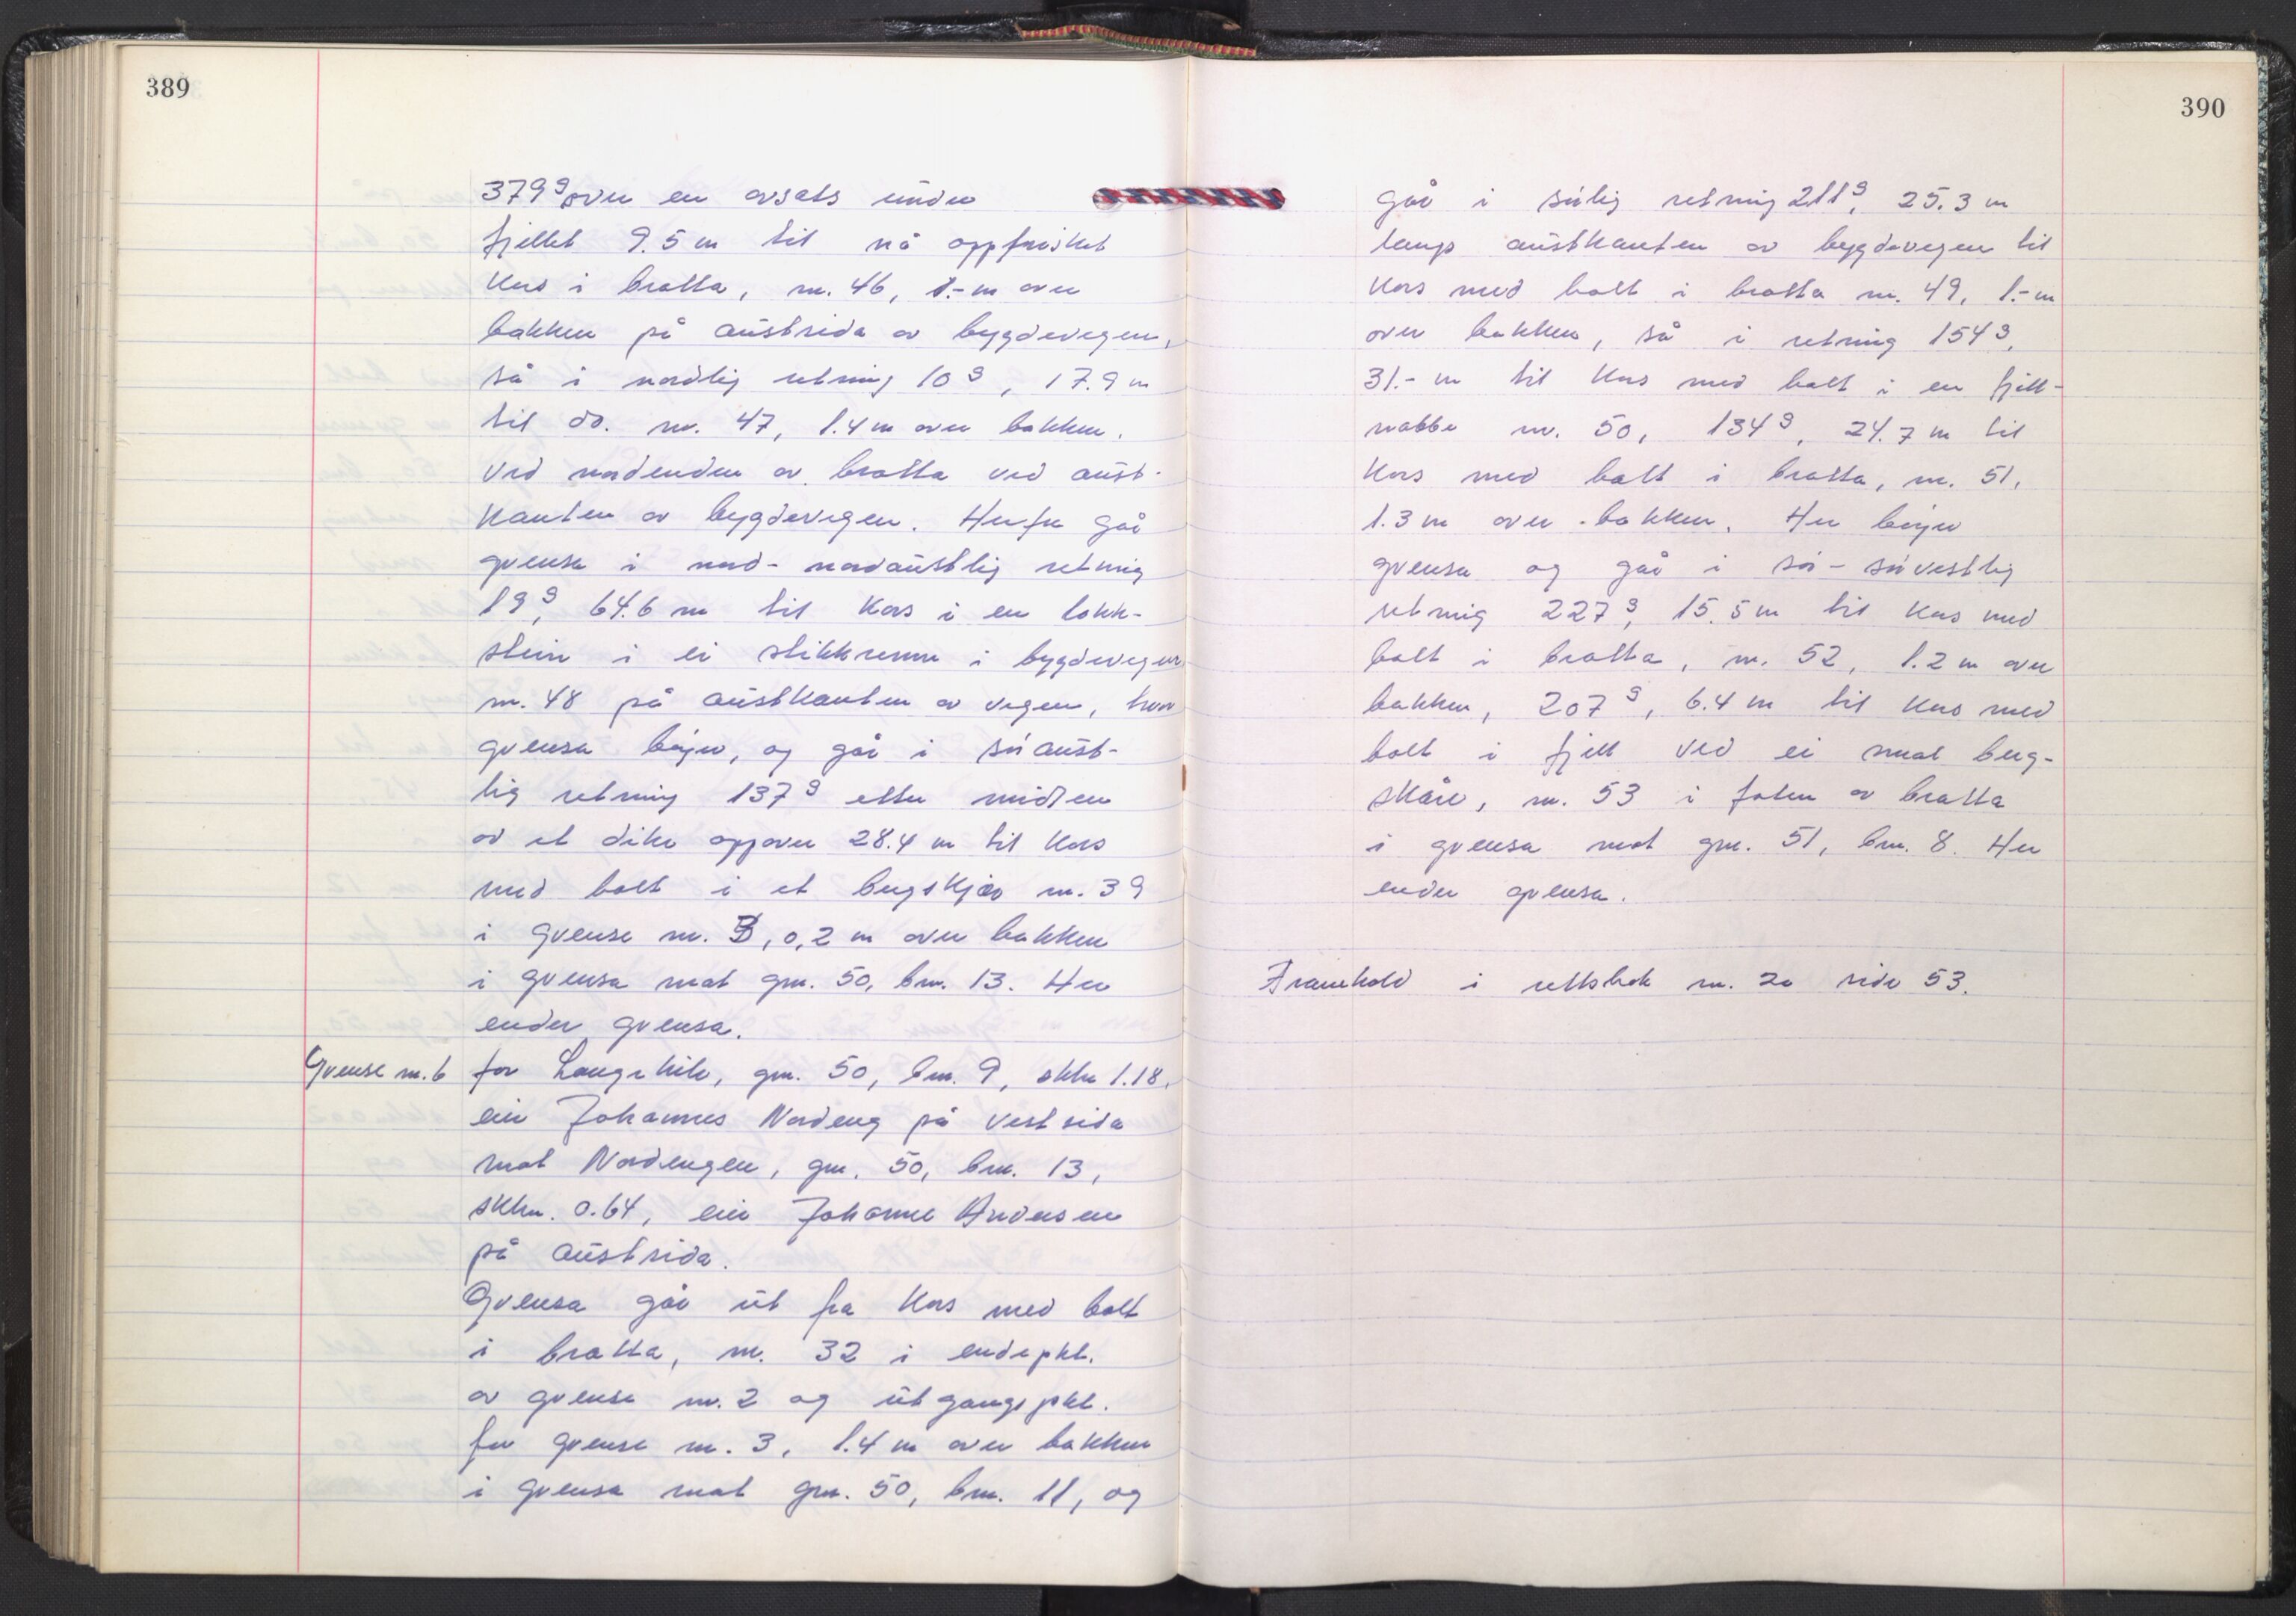 389
379g over en avsats under
fjellet 9.5 m til nå oppfrisket
kors i bratta, nr. 46, 1.- m over
bakken på austsida av bygdevegen,
så i nordlig retning 10g, 17.9 m
til do. nr. 47, 1.4 m over bakken.
ved nordenden av bratta ved aust-
kanten av bygdevegen. Herfra går
grensa i nord-nordaustlig retning
19g, 64.6 m til kors i en lokk-
stein i ei stikkrenne i bygdevegen
nr. 48 på austkanten av vegen, hvor
grensa bøyer, og går i søraust-
lig retning 137g etter midten
av et dike oppover 28.4 m til kors
med bolt i et bergskjær nr. 39
i grense nr. 3, 0,2 m over bakken
i grensa mot gnr. 50, bnr. 13. Her
ender grensa.
Grense nr. 6 for Langeli, gnr. 50, bnr. 9, skhr 1.18.
eier Johannes Nordeng på vestsida
mot Nordengen, gnr. 50, bnr. 13,
skhr. 0.64, eier Johanne Andersen
på austsida.
Grensa går ut fra kors med bolt
i bratta, nr. 32 i endepkt.
av grense nr. 2 og utgangspkt.
for grense nr. 3, 1.4 m over bakken
i grensa mot gnr. 50, bnr. 11, og
390
går i sørlig retning 211g, 25.3 m
langs austkanten av bygdevegen til
kors med bolt i bratta nr. 49, 1.- m
over bakken, så i retning 154g,
31.- m til kors med bolt i en fjell-
nabbe nr. 50, 134g, 24.7 m til
kors med bolt i bratta, nr. 51,
1.3 m over bakken. Her bøyer
grensa og går i sør-sørvestlig
retning 227g, 15.5 m til kors med
bolt i bratta, nr. 52, 1.2 m over
bakken, 207g, 6.4 m til kors med
bolt i fjell ved ei smal berg-
skåre, nr. 53 i foten av bratta
i grensa mot gnr. 51, bnr. 8. Her
ender grensa.
Framhald i rettsbok nr. 20 side 53.